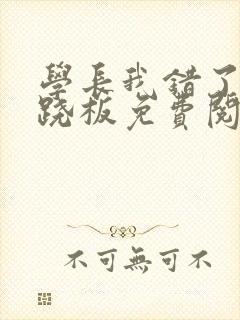 學長我錯了
跷板免費閱
不可無可不